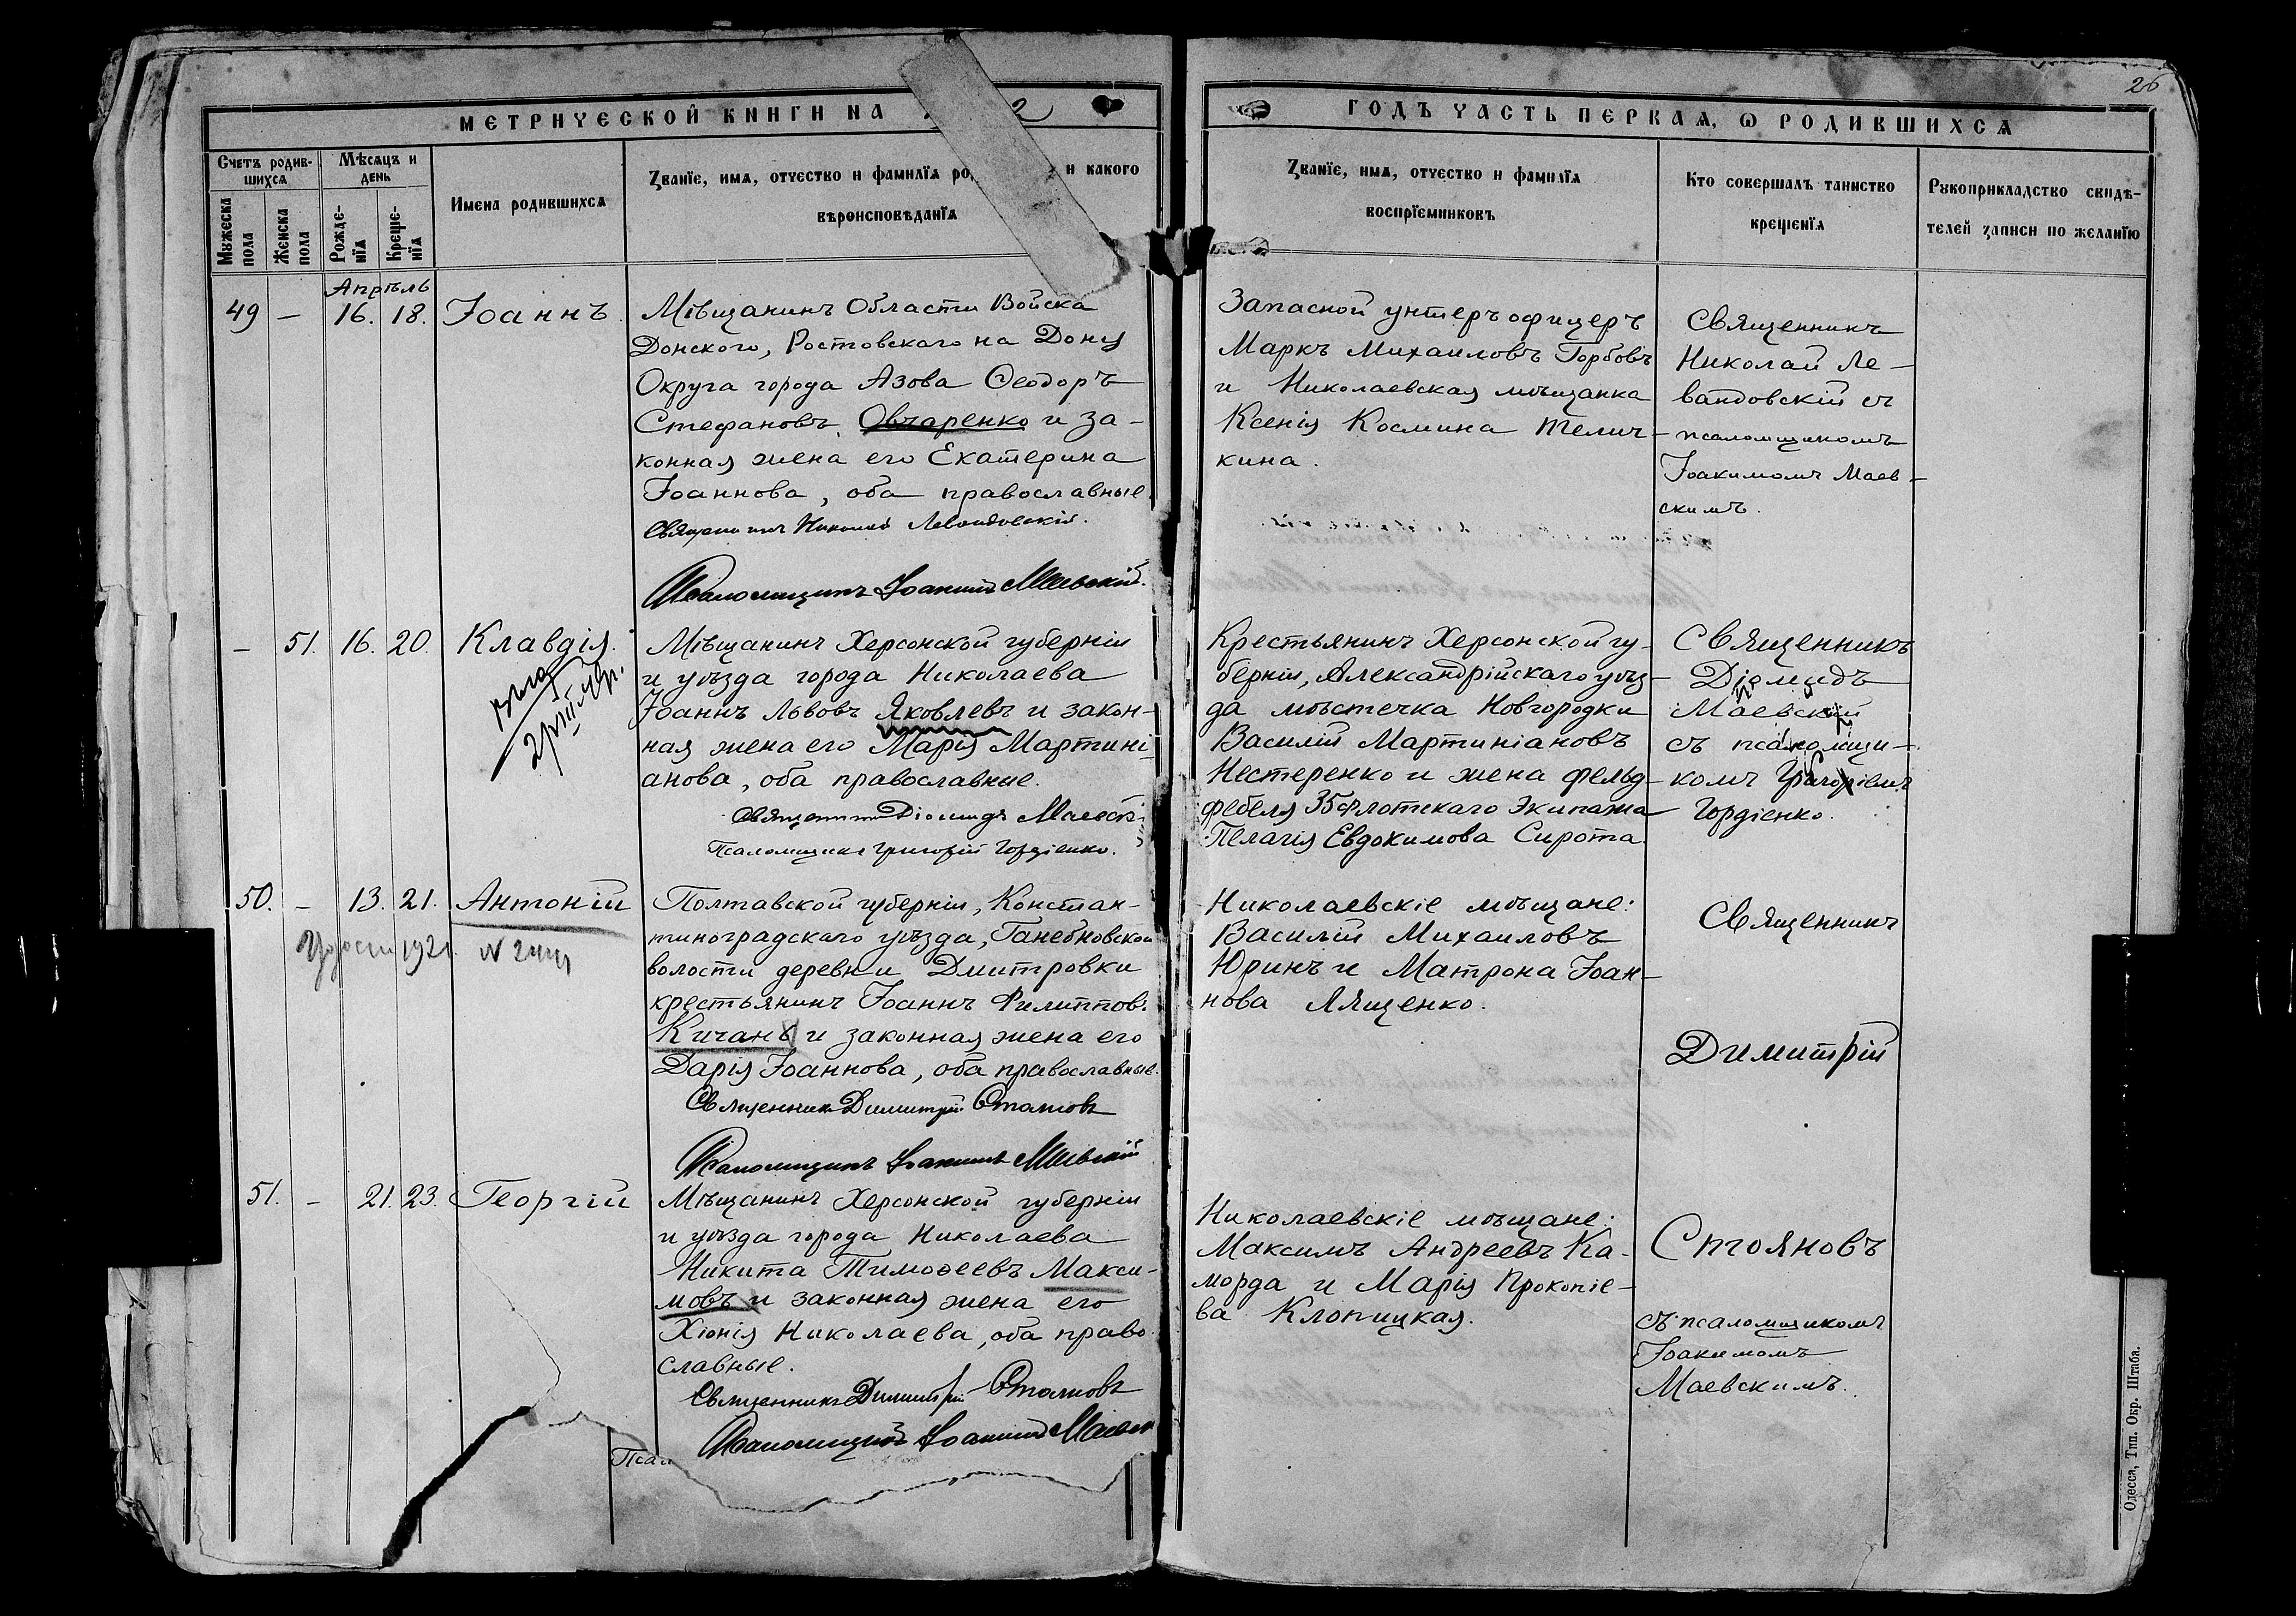 26
МЕТРИЧЕСКОЙ КНИГИ НА 2
ГОДЪ ЧАСТЬ ПЕРВАЯ, Ѡ РОДИВШИХСЯ
Счетъ родив-
шихся
Мѣсяцъ и
день
Мужеска
пола
Женска
пола
Рожде-
нїя
Креще-
нїя
Имена родившихся
Званїе, имя, отчество и фамилїя ро и какого
вѣроисповѣданїя
Званїе, имя, отчество и фамилїя
воспрїемниковъ
Кто совершалъ таинство
крещенїя
Рукоприкладство свидѣ-
телей записи по желанїю
Апрѣль
49 — 16. 18. Іоаннъ
Мѣщанинъ Области Войска
Донского, Ростовскаго на Дону
Округа города Азова Ѳеодоръ
Стефановъ Овчаренко и за-
конная жена его Екатерина
Іоаннова, оба православные.
Священникъ Николай Левандовскій.
Псаломщикъ Іоакимъ Маевскій.
Запасной унтеръ офицеръ
Маркъ Михаиловъ Горбовъ
и Николаевская мѣщанка
Ксенія Космина Телич-
кина.
Священникъ
Николай Ле-
вандовскій съ
псаломщикомъ
Іоакимомъ Маев-
скимъ.
— 51. 16. 20. Клавдія.
Мѣщанинъ Херсонской губерніи
и уѣзда города Николаева
Іоаннъ Львовъ Яковлевъ и закон-
ная жена его Марія Мартині-
анова, оба православные.
Священникъ Діомидъ Маевскі
Псаломщикъ Григорій Гордіенко.
Крестьянинъ Херсонской гу-
берніи, Александрійскаго уѣз-
да мѣстечка Новгородки
Василій Мартиніановъ
Нестеренко и жена фельд-
фебеля 35 флотскаго Экипажа
Пелагія Евдокимова Сирота.
Священникъ
Діомидъ
Маевскій
съ псаломщи-
комъ Григоріемъ
Гордіенко.
50. — 13. 21. Антоній
1921. N
Полтавской губерніи, Констан-
тиноградскаго уѣзда, Ганебновской
волости деревни Дмитровки
крестьянинъ Іоаннъ Филипповъ
Кичанъ и законная жена его
Дарія Іоаннова, оба православные.
Священникъ Димитрій Стояновъ
Псаломщикъ Іоакимъ Маевскій
Николаевскіе мѣщане:
Василій Михаиловъ
Юринъ и Матрона Іоан-
нова Лященко.
Священникъ
Димитрій
51. — 21. 23. Георгій
Мѣщанинъ Херсонской губерніи
и уѣзда города Николаева
Никита Тимоѳеевъ Макси-
мовъ и законная жена его
Хіонія Николаева, оба право-
славные.
Священникъ Димитрій Стояновъ
Псаломщикъ Іоакимъ Маевск
Псал
Николаевскіе мѣщане:
Максимъ Андреевъ Ка-
морда и Марія Прокопіе-
ва Клопицкая.
Стояновъ
съ псаломщикомъ
Іоакимомъ
Маевскимъ.
Одесса, Тип. Окр. Штаба.